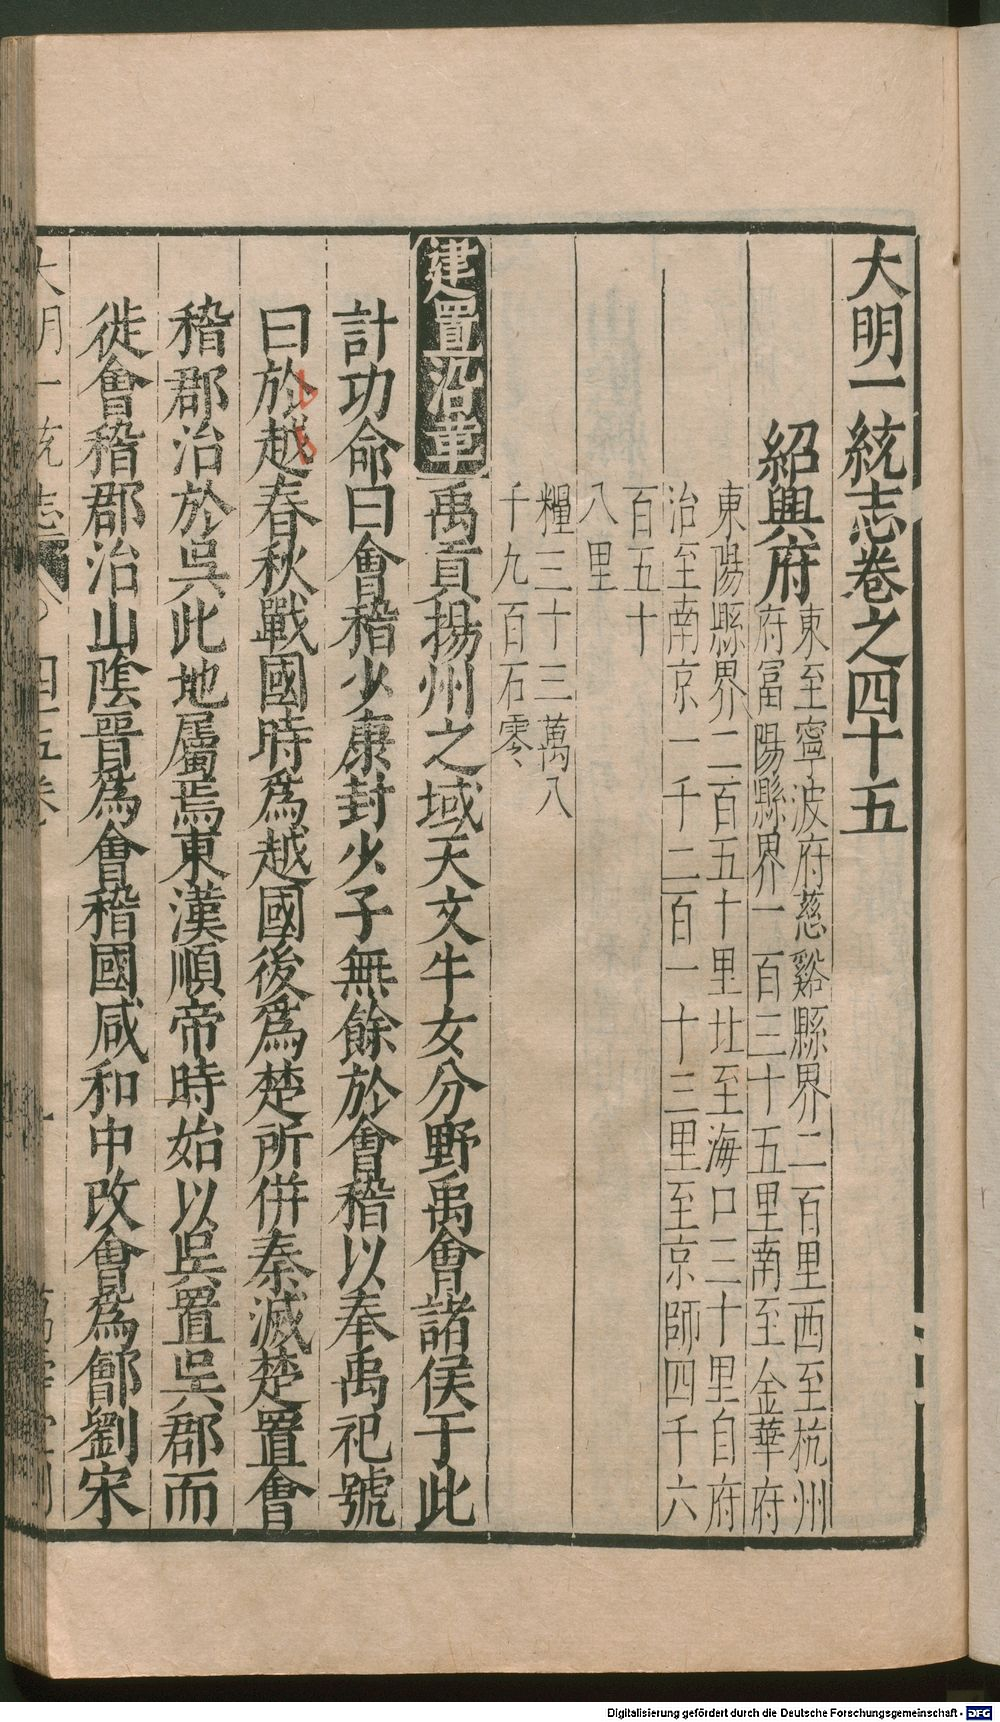 大明一統志卷之四十五
紹興府
東至寧波府慈谿縣界二百里西至杭州
府富陽縣界一百三十五里南至金華府
東陽縣界二百五十里北至海口三十里自府
治至南京一千二百一十三里至京師四千六
百五十
八里
糧三十三萬八
千九百石零
建置沿革 禹貢揚州之域天文牛女分野禹會諸侯于此
計功命曰會稽少康封少子無餘於會稽以奉禹祀號
曰於越春秋戰國時爲越國後爲楚所併秦滅楚置會
稽郡治於吳此地屬焉東漢順帝時始以吳置吳郡而
徙會稽郡治山陰晋爲會稽國咸和中改會爲鄶劉宋
大明一統志 四十五卷 一
Digitalisierung gefördert durch die Deutsche Forschungsgemeinschaft - DFG